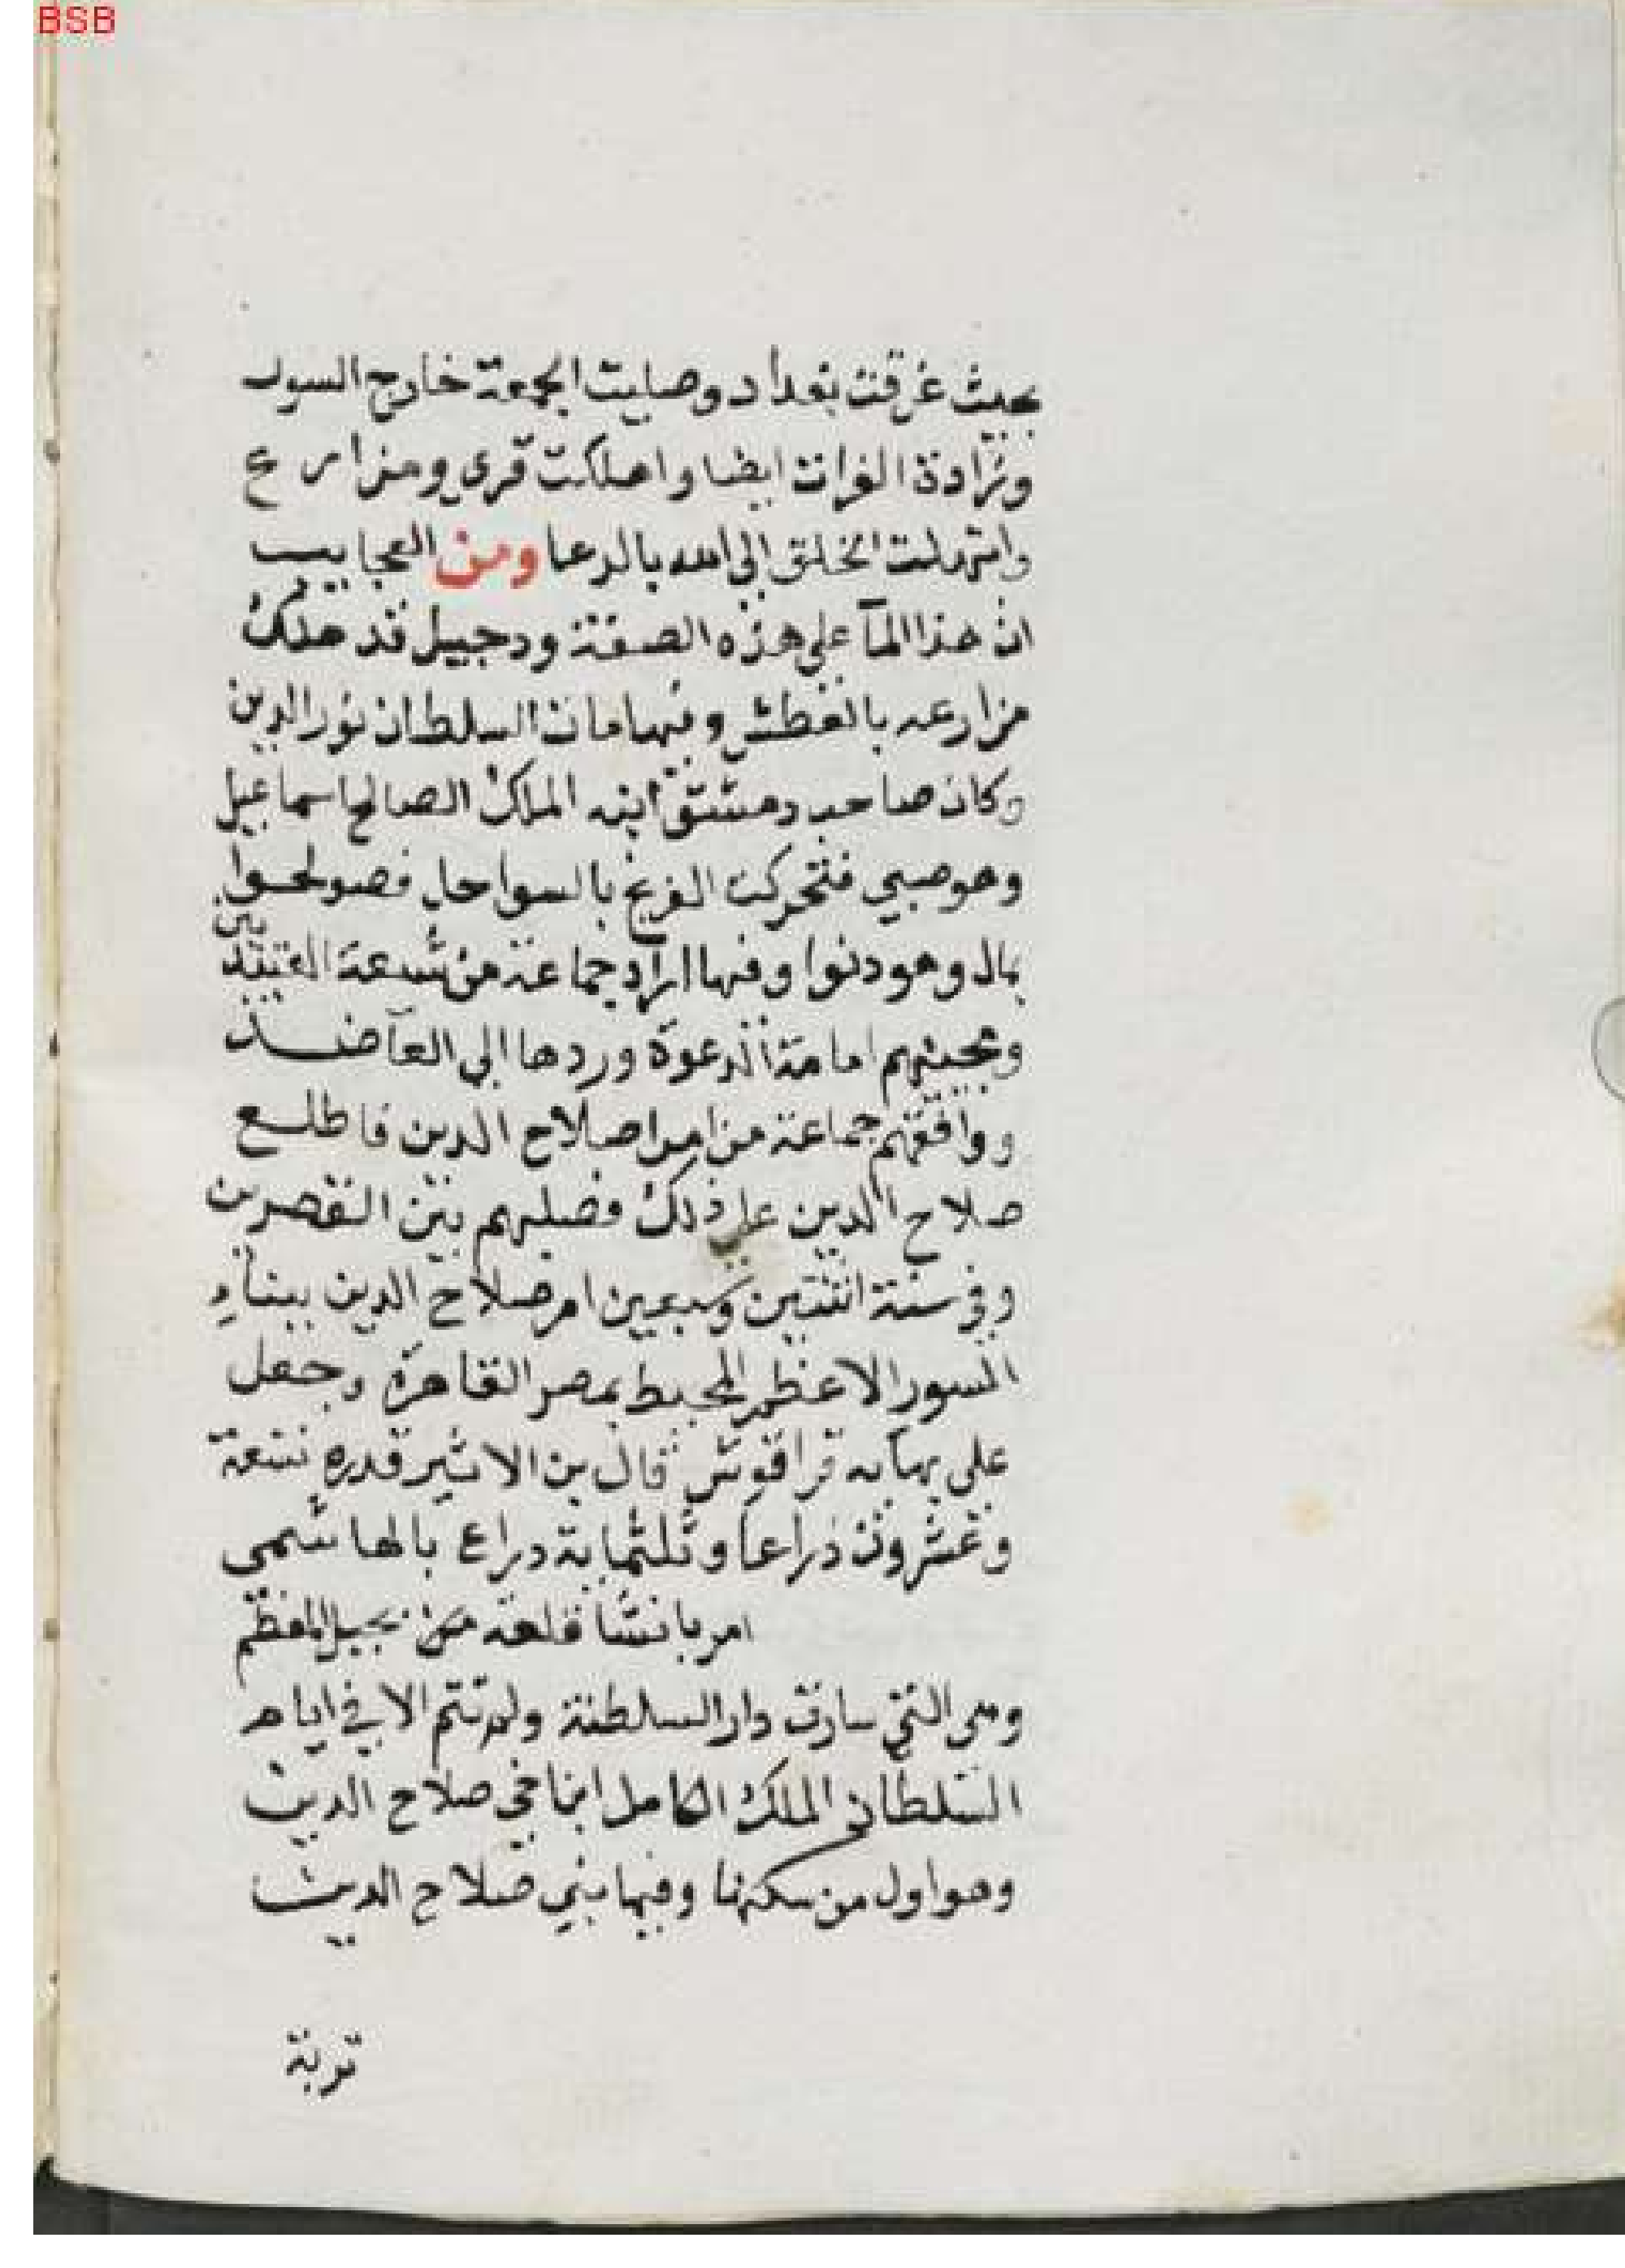 BSB
بحيث غرقت بغداد وصليت الجمعة خارج السور
وزادة الفرات ايضا واهلكت قرى ومزارع
وابتهلت الخلق الى الله بالدعا ومن العجايب
ان هذا المآ على هذه الصفة ودجيل قد هلك
مزارعه بالعطش وفيها مات السلطان نور الدين
وكان صاحب دمشق ابنه الملك الصالح اسماعيل
وهو صبي فتحركت الفرنج بالسواحل فصولحوا
بمال وهودنوا وفيها اراد جماعة من شيعة العبيديين
ومحبيهم اقامة الدعوة وردها الى العاضد
ووافقهم جماعة من امرا صلاح الدين فاطلع
صلاح الدين على ذلك فصلبهم بين القصرين
وفي سنة اثنتين وسبعين امر صلاح الدين ببناء
السور الاعظم المحيط بمصر القاهرة وجعل
على بهايه قراقوش قال بن الاثير قدره تسعة
وعشرون ذراعا وثلثماية دراع بالهاشمي
امر بانشا قلعة من بجبل المقطم
وهي التي سارت دار السلطنة ولم تتم الا في ايام
السلطان الملك الكامل ابن اخي صلاح الدين
وهو اول من سكنها وفيها بني صلاح الدين
تربة